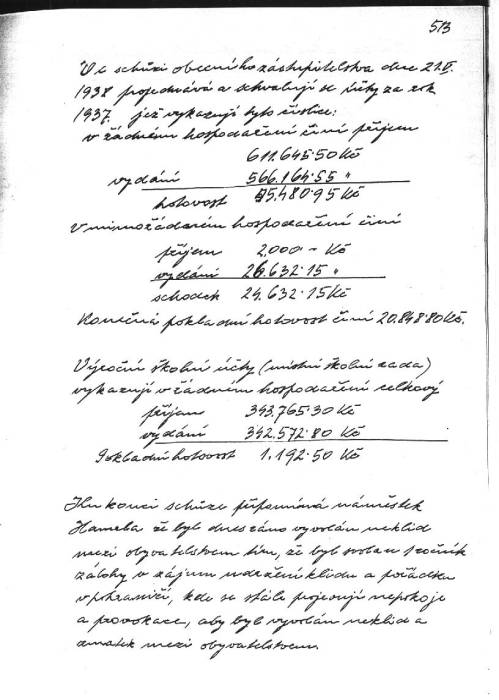 513
Ve schůzi obecního zastupitelstva dne 21.V.
1938 projednává a schvalují se účty za rok
1937. jež vykazují tyto číslice:
v řádném hospodaření činí příjem
611.645·50 Kč
vydání 566.164·55 "
hotovost 45.480·95 Kč
V mimořádném hospodaření činí
příjem 2.000 - Kč
vydání 26.632·15 "
schodek 24.632·15 Kč
Konečná pokladní hotovost činí 20.848·80 Kč.
Výroční školní účty (místní školní rada)
vykazují v řádném hospodaření celkový
příjem 343.765·30 Kč
vydání 342.572·80 Kč
Pokladní hotovost 1.192·50 Kč
Ku konci schůze připomíná náměstek
že byl dnes ráno vyvolán neklid
mezi obyvatelstvem tím, že byl svolán ročník
zálohy v zájmu udržení klidu a pořádku
v pohraničí, kde se stále projevují nepokoje
a provokace, aby byl vyvolán neklid a
zmatek mezi obyvatelstvem.